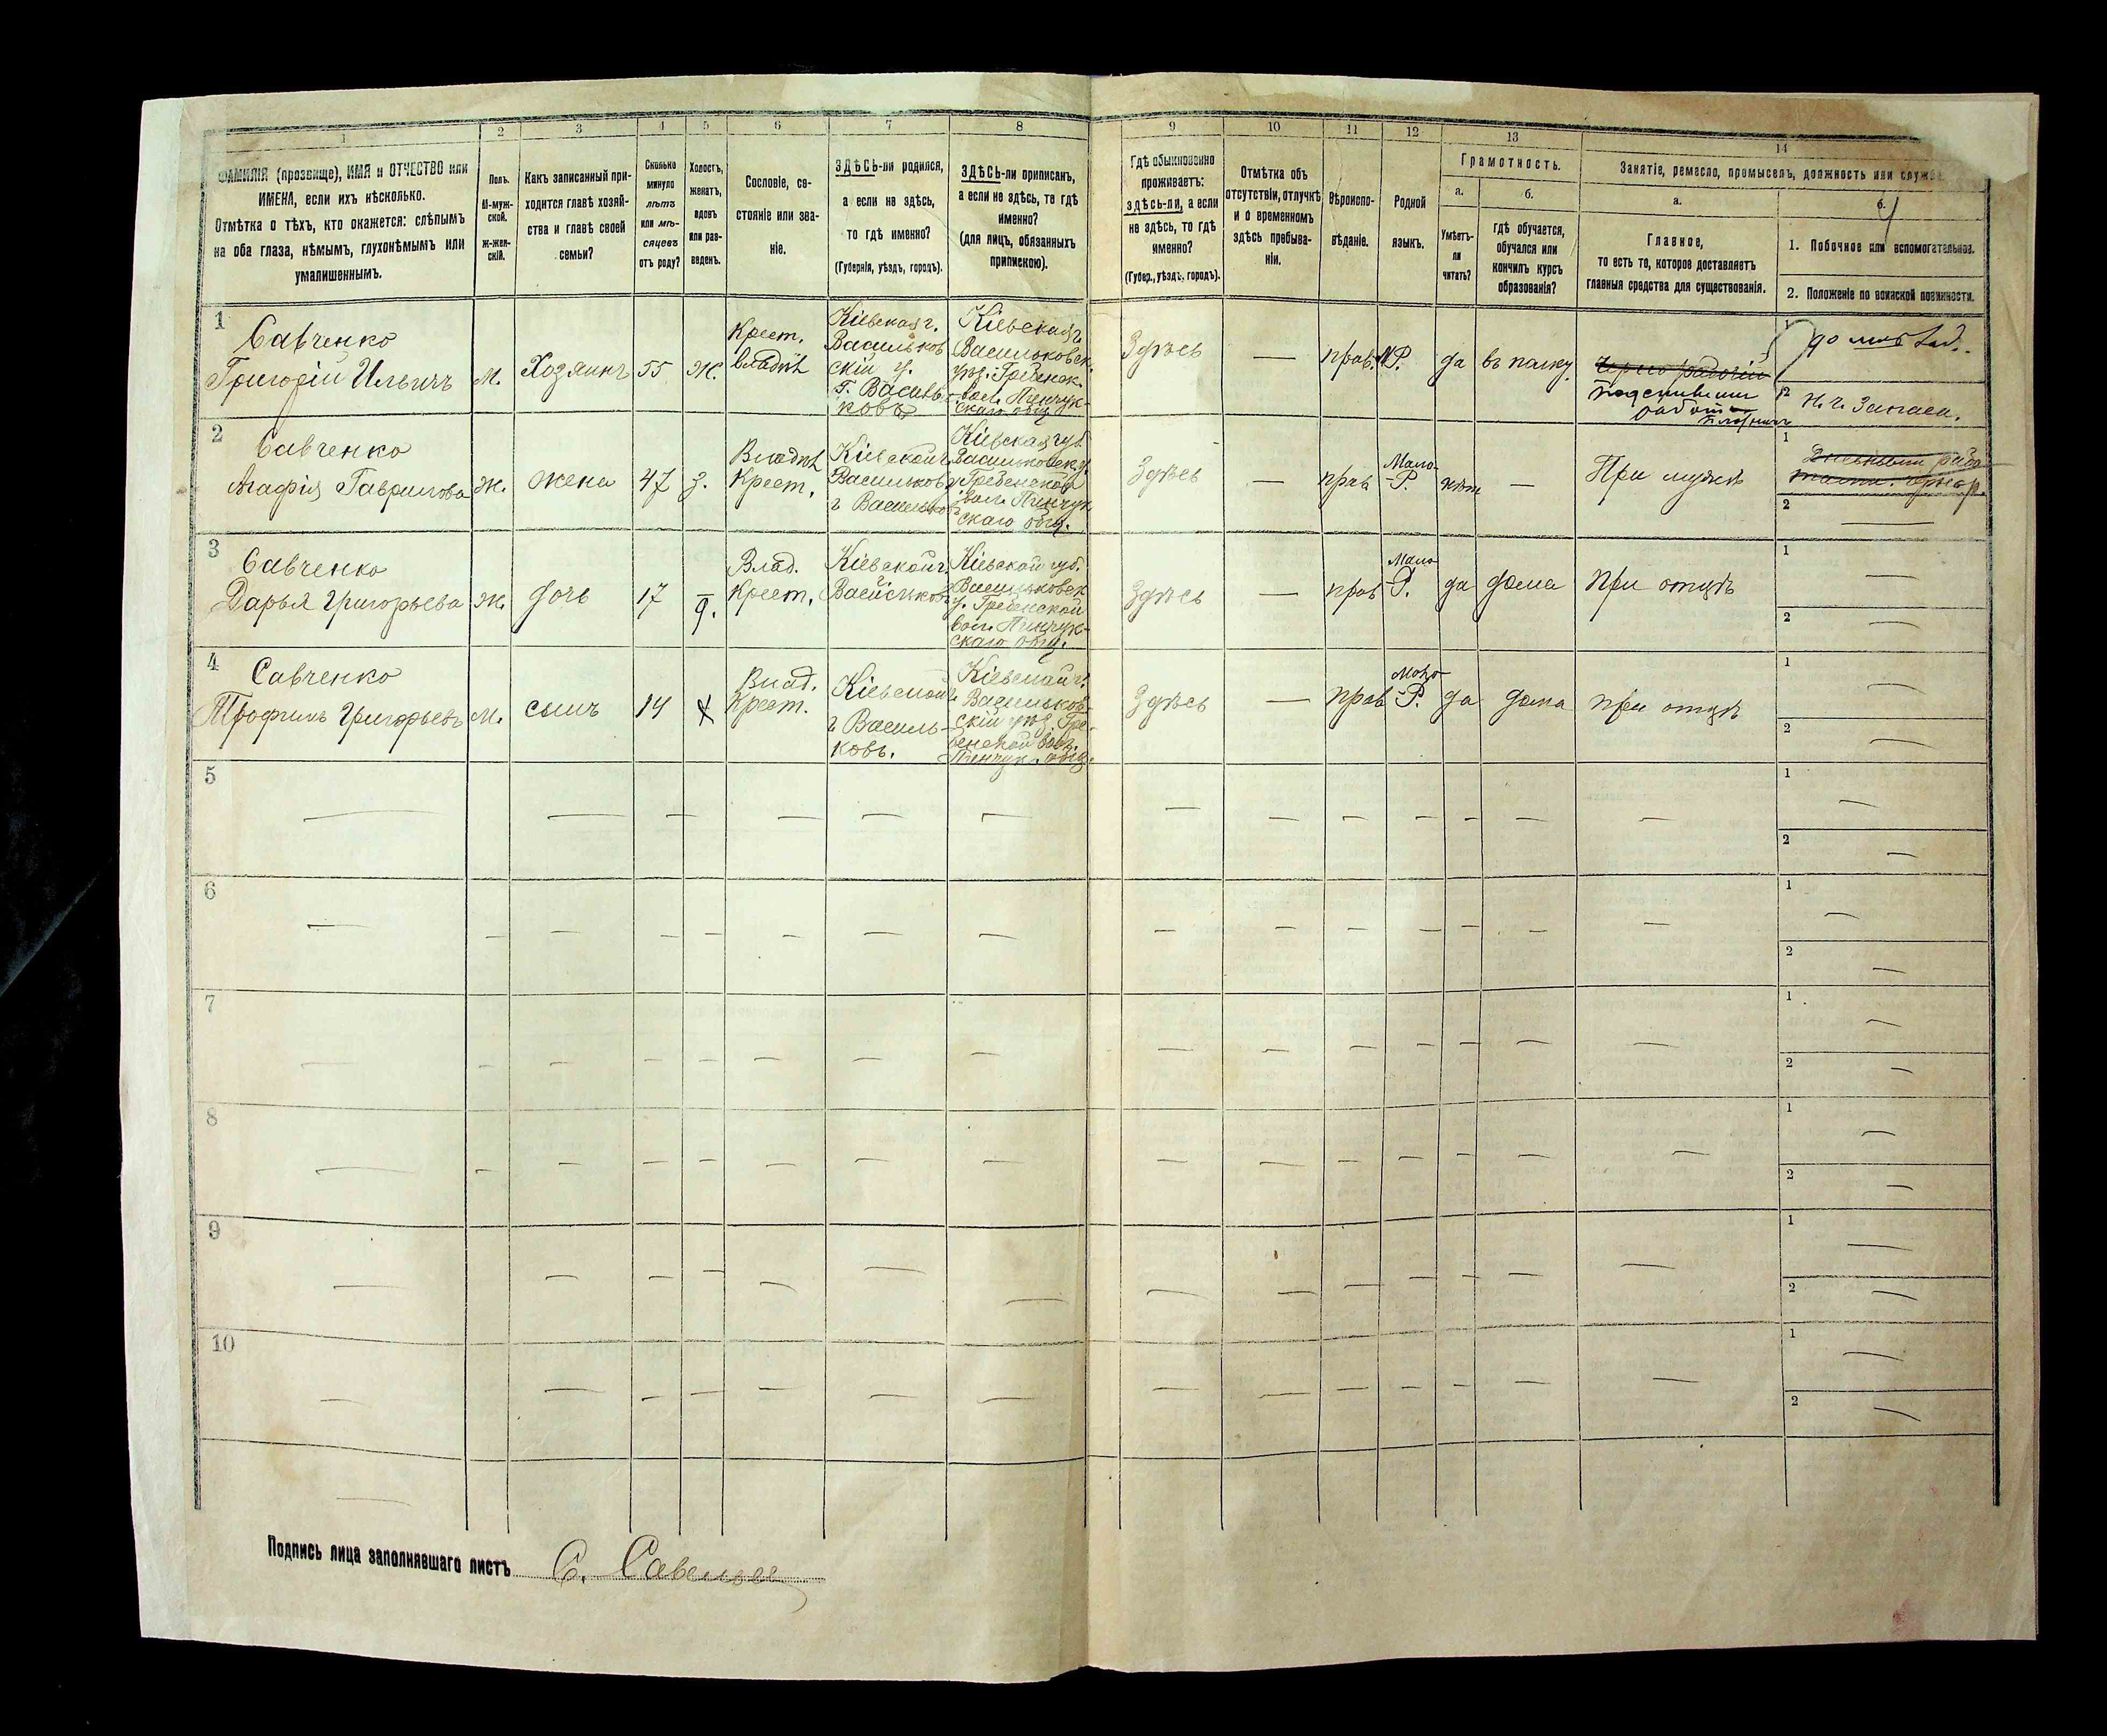 1 2 3 4 5 6 7 8 9 10 11 12 13 14
ФАМИЛІЯ (прозвище), ИМЯ и ОТЧЕСТВО или
ИМЕНА, если ихъ нѣсколько.
Отмѣтка о тѣхъ, кто окажется: слѣпымъ
на оба глаза, нѣмымъ, глухонѣмымъ или
умалишеннымъ.
Полъ.
М-муж-
ской.
Ж-жен-
скій.
Какъ записанный при-
ходится главѣ хозяй-
ства и главѣ своей
семьи?
Сколько
минуло
лѣтъ
или мѣ-
сяцевъ
отъ роду?
Холостъ,
женатъ,
вдовъ
или раз-
веденъ.
Сословіе, со-
стояніе или зва-
ніе.
ЗДѢСЬ-ли родился,
а если не здѣсь,
то гдѣ именно?
(Губернія, уѣздъ, городъ).
ЗДѢСЬ-ли приписанъ,
а если не здѣсь, то гдѣ
именно?
(для лицъ, обязанныхъ
припискою).
Гдѣ обыкновенно
проживаетъ:
здѣсь-ли, а если
не здѣсь, то гдѣ
именно?
(Губер., уѣздъ, городъ).
Отмѣтка объ
отсутствіи, отлучкѣ
и о временномъ
здѣсь пребыва-
ніи.
Вѣроиспо-
вѣданіе.
Родной
языкъ.
Грамотность.
а.
Умѣетъ-
ли
читать?
б.
гдѣ обучается,
обучался или
кончилъ курсъ
образованія?
Занятіе, ремесло, промыселъ, должность или служба
а.
Главное,
то есть то, которое доставляетъ
главныя средства для существованія.
б.
1. Побочное или вспомогательное.
2. Положеніе по воинской повинности.
1
Савченко
Григорій Ильичъ
М.
Хозяинъ
55
Ж.
Крест.
владѣл
Кіевская г.
Васильков
скій у.
г. Василь-
ковъ
Кіевская г.
Васильковск.
уѣз. Гребенск.
вол. Пинчук-
скаго общ.
Здѣсь
—
прав.
М.Р.
да
въ полку
Чернорабочій
1
2
Н. ч. Запаса.
2
Савченко
Агафія Гаврилова
Ж.
жена
47
З.
Владѣл
Крест.
Кіевской г.
Васильков у
г Васильков
Кіевская губ
Васильковск у.
Гребенской
вол. Пинчук
скаго общ.
Здѣсь
—
прав
Мало-
Р.
нѣт
—
При мужѣ
1
2
—
3
Савченко
Дарья Григорьева
Ж.
дочь
17
д.
Влад.
Крест.
Кіевской г.
Васильков
Кіевской губ.
Васильковск
у. Гребенской
вол. Пинчук-
скаго общ.
Здѣсь
—
прав
Мало-
Р.
да
дома
при отцѣ
1
—
2
—
4
Савченко
Трофимъ Григорьевъ
М.
сынъ
14
х
Влад.
Крест.
Кіевской г.
г Василь-
ковъ.
Кіевской г.
Васильков-
скій уѣз. Гре-
бенской вол.
Пинчук. общ.
Здѣсь
—
прав
Мало-
Р.
да
дома
при отцѣ
1
—
2
—
5
1
2
6
1
2
7
1
2
8
1
2
9
1
2
10
1
2
Подпись лица заполнявшаго листъ С. Савельев